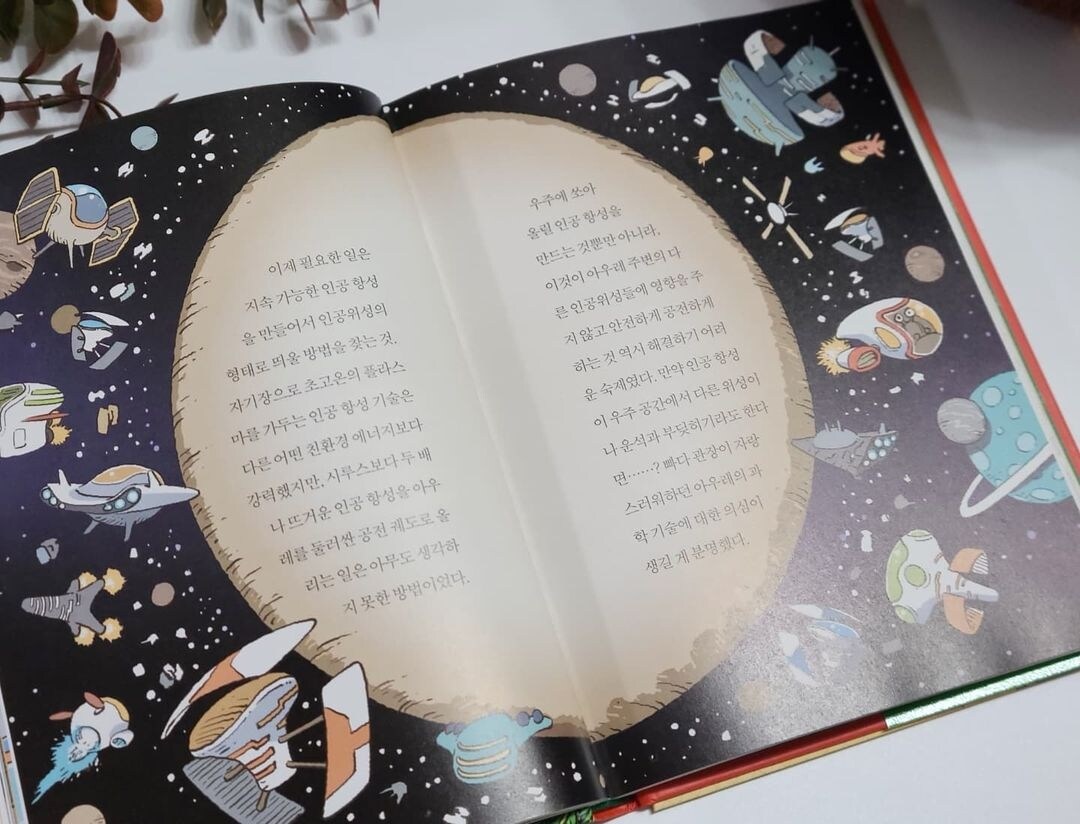 이제 필요한 일은
지속 가능한 인공 항성
을 만들어서 인공위성의
형태로 띄울 방법을 찾는 것.
자기장으로 초고온의 플라스
마를 가두는 인공 항성 기술은
다른 어떤 친환경 에너지보다
강력했지만, 시루스보다 두 배
나 뜨거운 인공 항성을 아우
레를 둘러싼 공전 궤도로 올
리는 일은 아무도 생각하
지 못한 방법이었다.
우주에 쏘아
올릴 인공 항성을
만드는 것뿐만 아니라,
이것이 아우레 주변의 다
른 인공위성들에 영향을 주
지 않고 안전하게 공전하게
하는 것 역시 해결하기 어려
운 숙제였다. 만약 인공 항성
이 우주 공간에서 다른 위성이
나 운석과 부딪히기라도 한다
면……? 빠다 관장이 자랑
스러워하던 아우레의 과
학 기술에 대한 의심이
생길 게 분명했다.